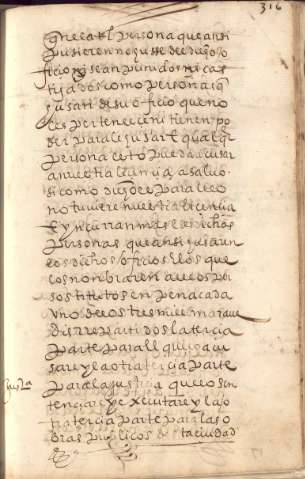 316
persona que ansi
pusieren no use del dicho o
ficio y sean punidos y cas
tigados como persona q
usan de su oficio que no
les pertenece ni tienen po
der para le usar e qualqr
persona lo pueda acusar
a nuestra
si como dicho es para ello
no tuviere nuestra licencia
e yncurran mas los dichos
personas que ansi usaren
los dichos oficios e los que
los nonbraren a ellos por
sostitutos en pena cada
uno dellos de tres mill marave
dis rrepartidos la tercia
parte para el que lo acu
sare y la otra tercia parte
para la justicia que lo sen
tenciare y executare y la o
tra tercia parte para las o
bras publicas desta ciudad